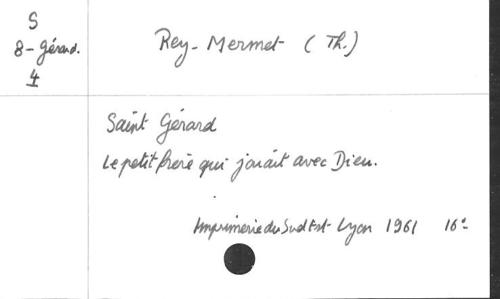 S
8-Gérard.
4
Rey-Mermet (Th.)
Saint Gérard
Le petit frère qui jouait avec Dieu.
Imprimerie du Sud Est- Lyon 1961 16°